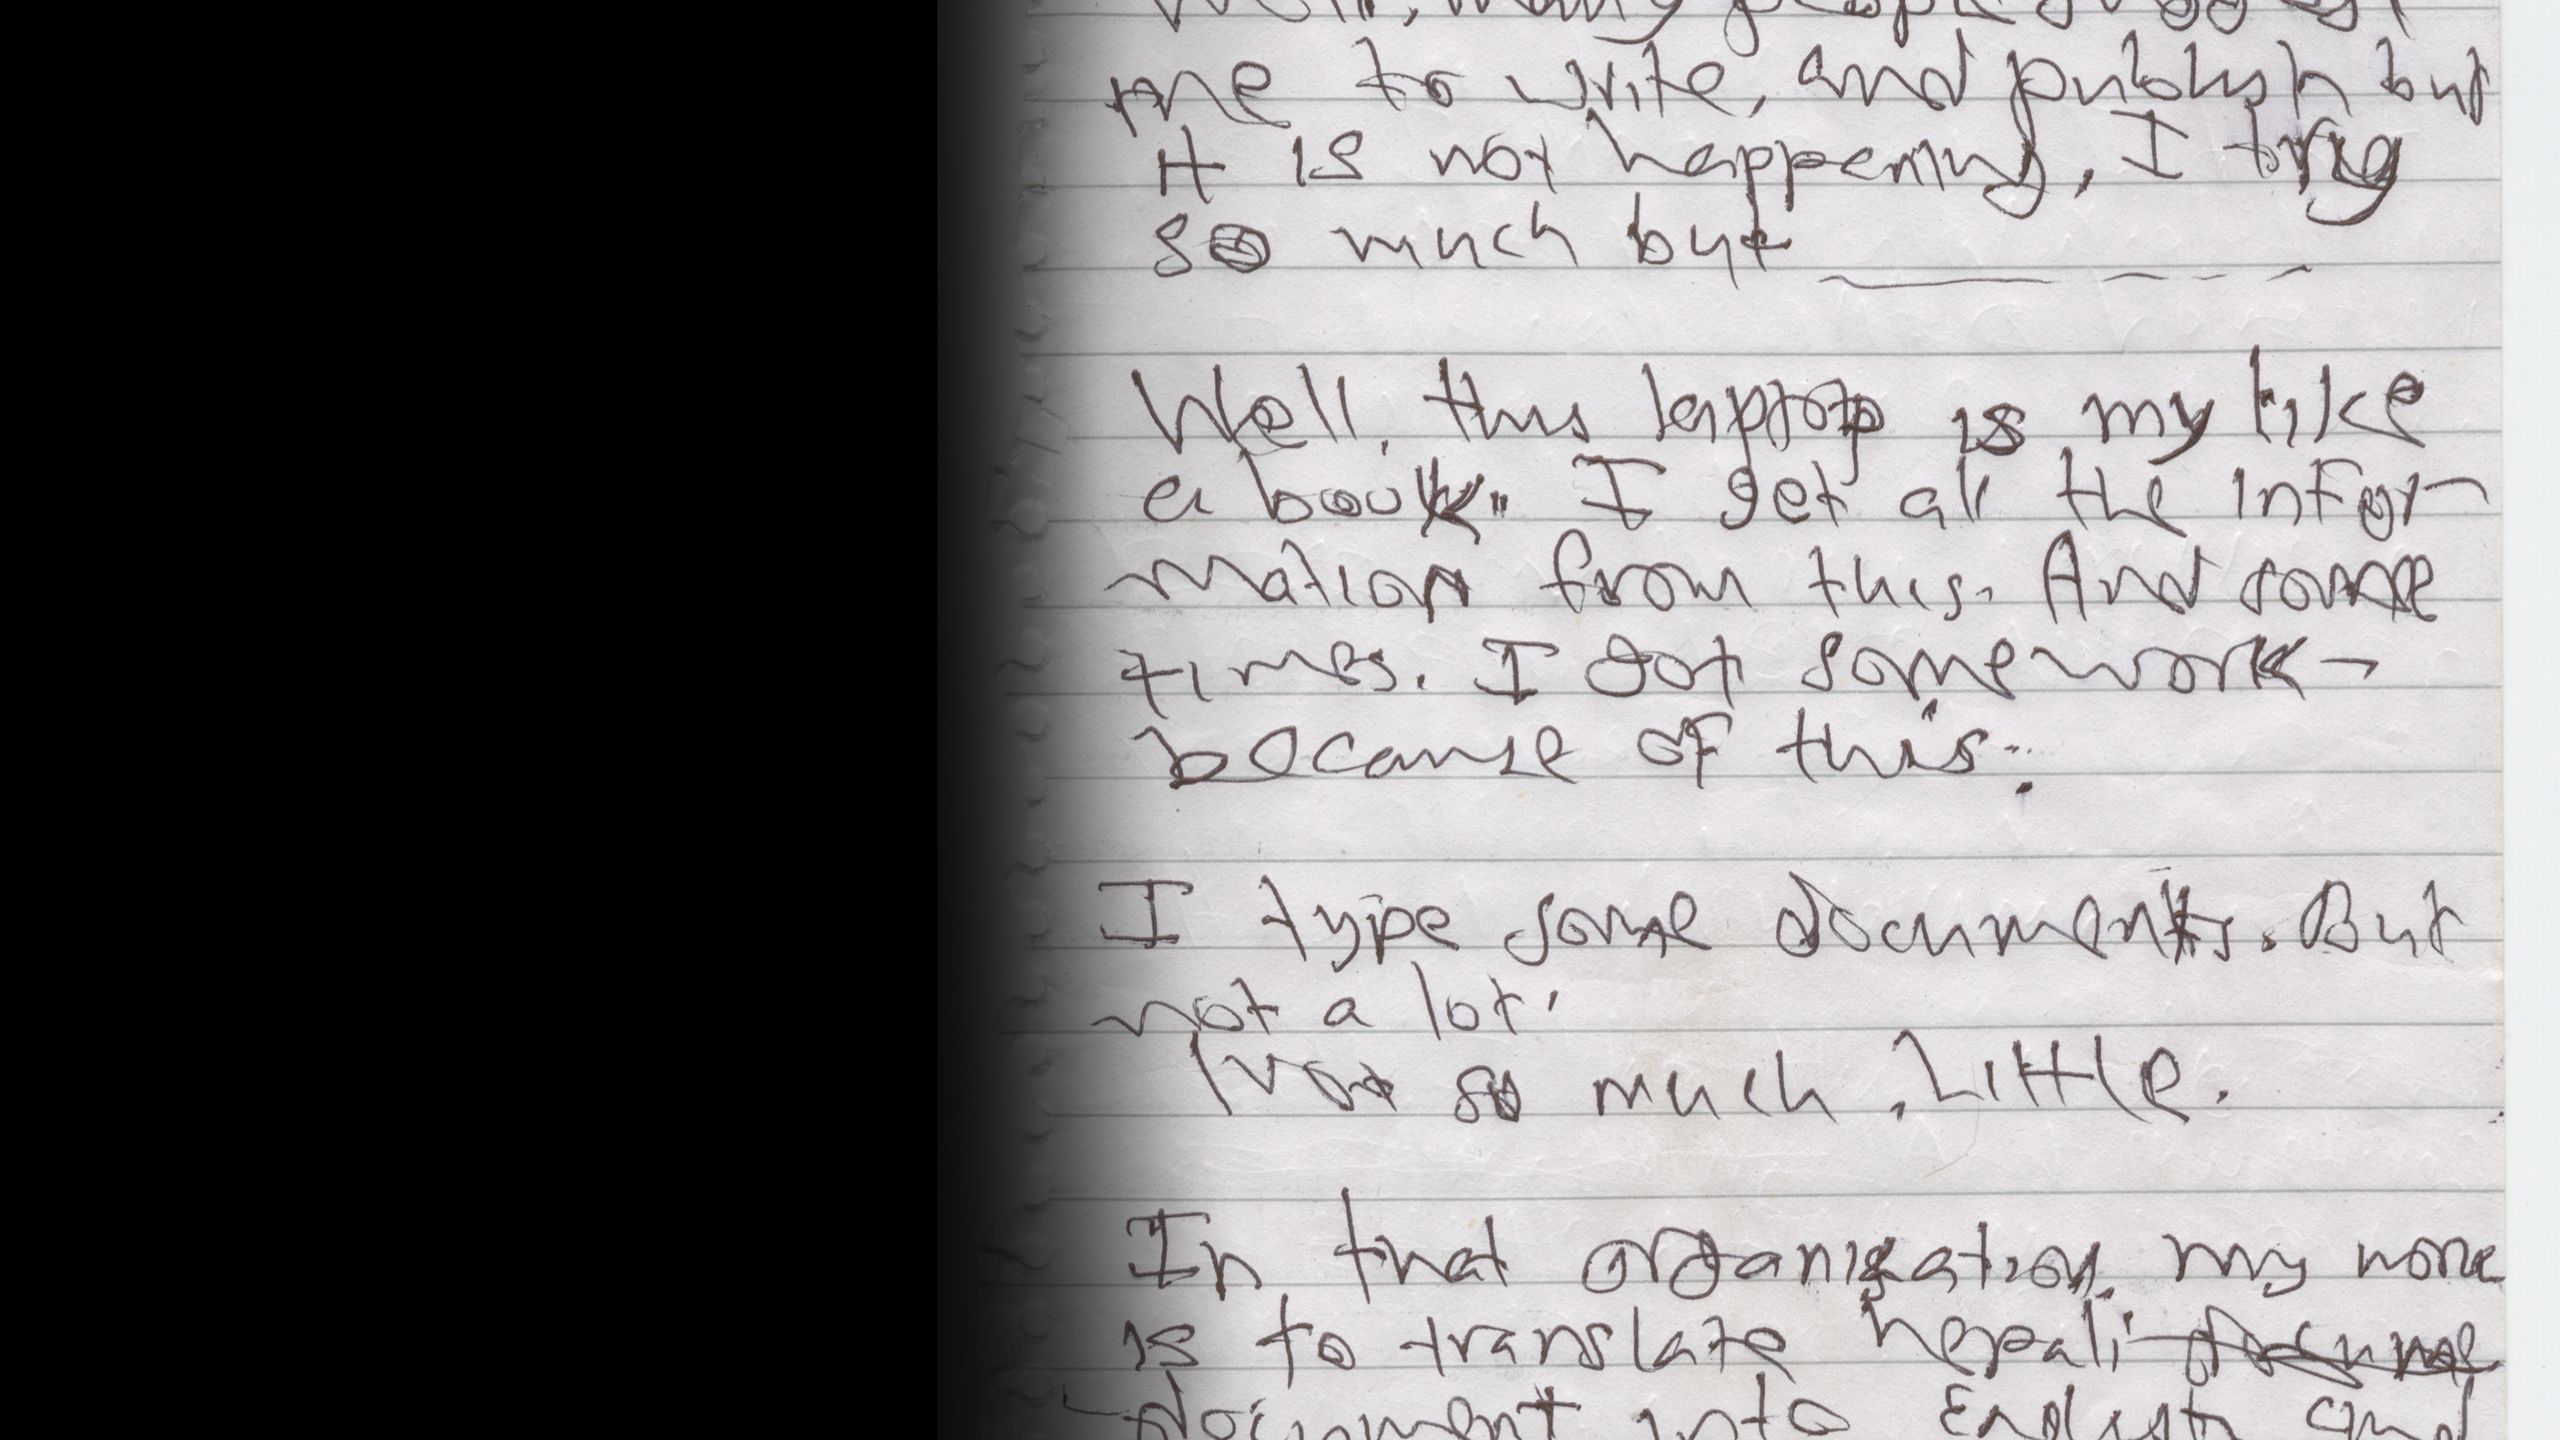 Well, many people suggest
me to write, and publish but
it is not happening, I try
so much but
Well, this laptop is my like
a book. I get all the infor-
mation from this. And some
times. I got some work -
because of this.
I type some documents. But
not a lot.
Not so much, Little.
In that organization, my work
is to translate nepali
document into English and